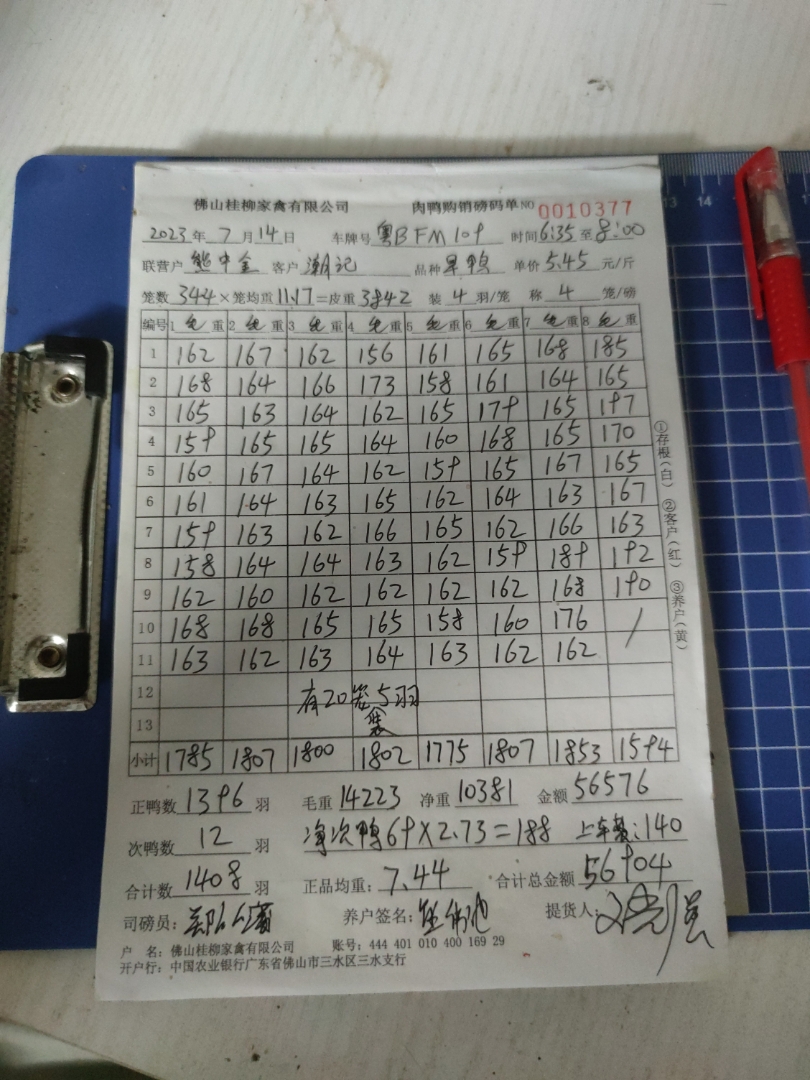 佛山桂柳家禽有限公司 肉鸭购销磅码单 NO 0010377
2023年7月14日 车牌号 粤BFM109 时间6:35至8:00
联营户 熊中金 客户 潮记 品种 旱鸭 单价5.45元/斤
笼数344×笼均重11.17=皮重3842 装4羽/笼 称4笼/磅
编号 1毛重 2毛重 3毛重 4毛重 5毛重 6毛重 7毛重 8毛重
1 162 167 162 156 161 165 168 185
2 168 164 166 173 158 161 164 165
3 165 163 164 162 165 179 165 197
4 159 165 165 164 160 168 165 170
5 160 167 164 162 159 165 167 165
6 161 164 163 165 162 164 163 167
7 159 163 162 166 165 162 166 163
8 158 164 164 163 162 159 189 192
9 162 160 162 162 162 162 168 190
10 168 168 165 165 158 160 176 /
11 163 162 163 164 163 162 162
12 有20笼5羽
13 装
小计 1785 1807 1800 1802 1775 1807 1853 1594
①存根(白) ②客户(红) ③养户(黄)
正鸭数1396羽 毛重14223 净重10381 金额56576
次鸭数12羽 净次鸭69×2.73=188 上车费:140
合计数1408羽 正品均重:7.44 合计总金额56904
司磅员: 养户签名: 提货人:
户 名:佛山桂柳家禽有限公司 账号:444 401 010 400 169 29
开户行:中国农业银行广东省佛山市三水区三水支行
13 14